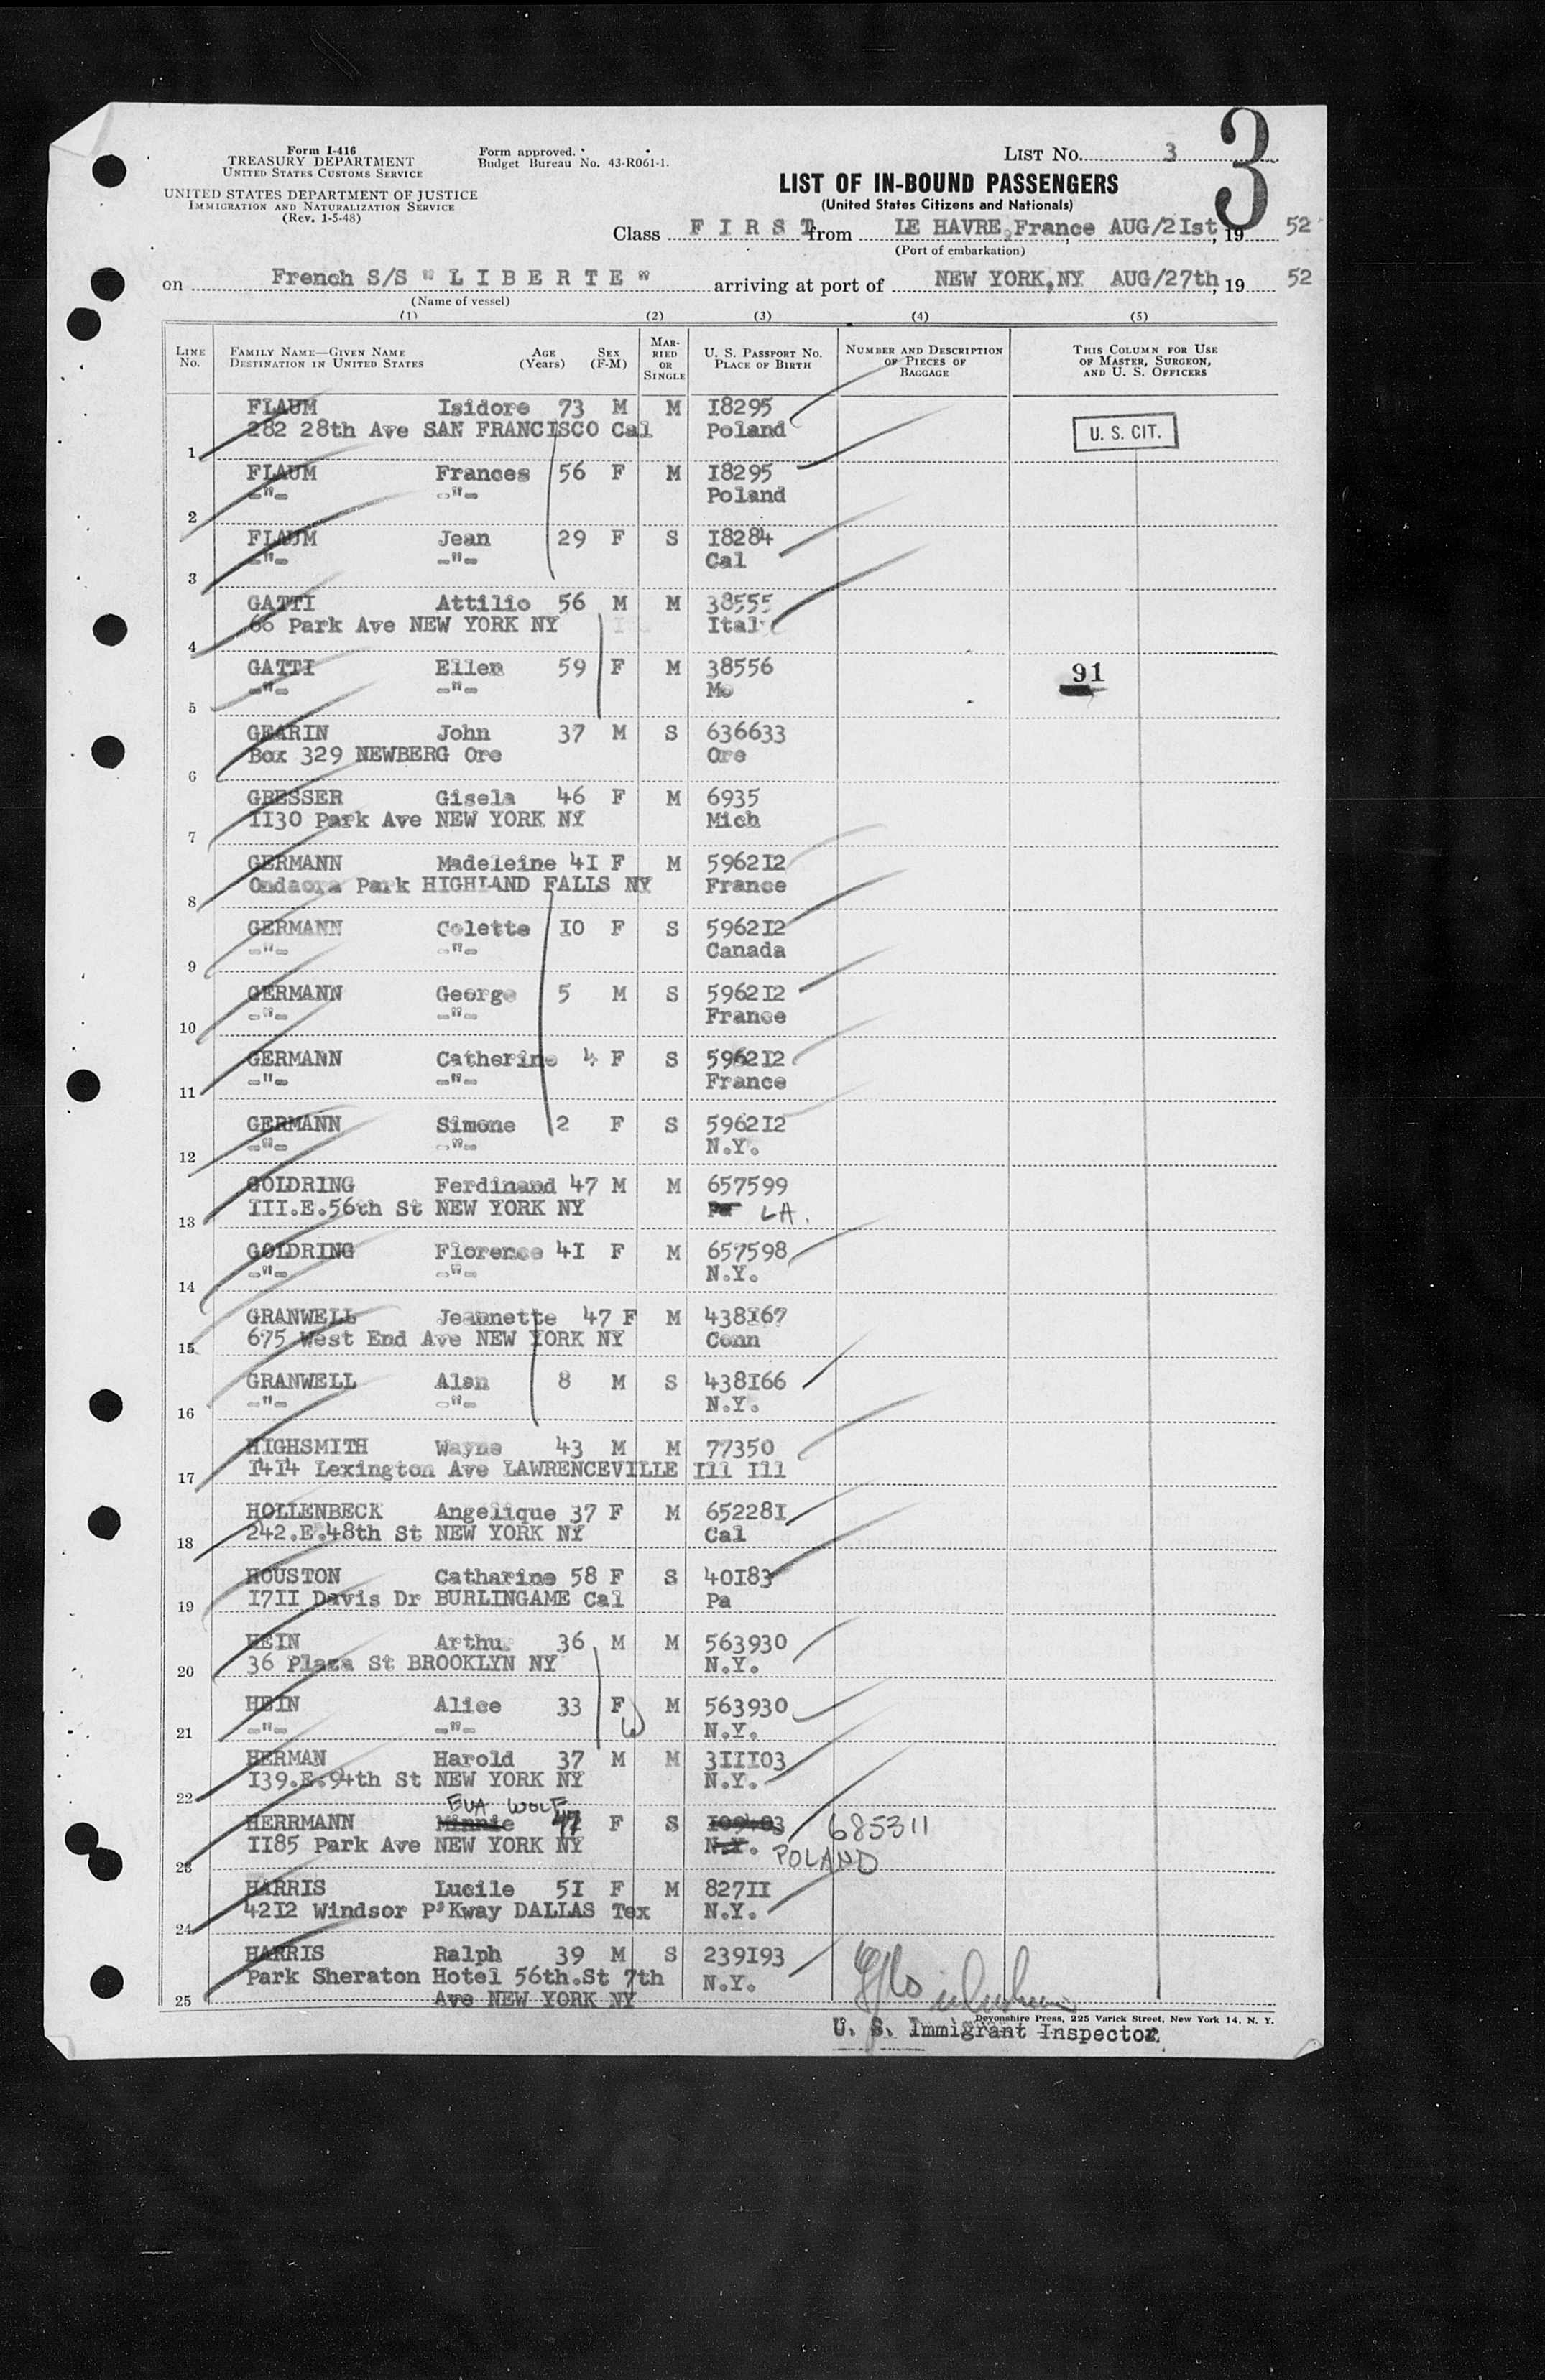 Form I-416
TREASURY DEPARTMENT
UNITED STATES CUSTOMS SERVICE
UNITED STATES DEPARTMENT OF JUSTICE
IMMIGRATION AND NATURALIZATION SERVICE
(Rev. 1-5-48)
Form approved.
Budget Bureau No. 43-R061-1.
LIST No. 3
3
LIST OF IN-BOUND PASSENGERS
(United States Citizens and Nationals)
Class F I R S T from LE HAVRE, France, AUG/2Ist, 19 52
(Port of embarkation)
on French S/S " L I B E R T E " arriving at port of NEW YORK,NY AUG/27th, 19 52
(Name of vessel)
(1) (2) (3) (4) (5)
LINE No. FAMILY NAME—GIVEN NAME DESTINATION IN UNITED STATES AGE (Years) SEX (F-M) MARRIED OR SINGLE U. S. PASSPORT No. PLACE OF BIRTH NUMBER AND DESCRIPTION OF PIECES OF BAGGAGE THIS COLUMN FOR USE OF MASTER, SURGEON, AND U. S. OFFICERS
FLAUM Isidore 73 M M I8295
282 28th Ave SAN FRANCISCO Cal Poland U. S. CIT.
1
FLAUM Frances 56 F M I8295
-"- -"- Poland
2
FLAUM Jean 29 F S I8284
-"- -"- Cal
3
GATTI Attilio 56 M M 38555
66 Park Ave NEW YORK NY Italy
4
GATTI Ellen 59 F M 38556 91
-"- -"- Mo
5
GEARIN John 37 M S 636633
Box 329 NEWBERG Ore Ore
6
GRESSER Gisela 46 F M 6935
II30 Park Ave NEW YORK NY Mich
7
GERMANN Madeleine 4I F M 5962I2
Ondaora Park HIGHLAND FALLS NY France
8
GERMANN Colette IO F S 5962I2
-"- -"- Canada
9
GERMANN George 5 M S 5962I2
-"- -"- France
10
GERMANN Catherine 4 F S 5962I2
-"- -"- France
11
GERMANN Simone 2 F S 5962I2
-"- -"- N.Y.
12
GOLDRING Ferdinand 47 M M 657599
III.E.56th St NEW YORK NY Pa LA.
13
GOLDRING Florence 4I F M 657598
-"- -"- N.Y.
14
GRANWELL Jeannette 47 F M 438I67
675 West End Ave NEW YORK NY Conn
15
GRANWELL Alan 8 M S 438I66
-"- -"- N.Y.
16
HIGHSMITH Wayne 43 M M 77350
I4I4 Lexington Ave LAWRENCEVILLE Ill Ill
17
HOLLENBECK Angelique 37 F M 65228I
242.E.48th St NEW YORK NY Cal
18
HOUSTON Catharine 58 F S 40I83
I7II Davis Dr BURLINGAME Cal Pa
19
HEIN Arthur 36 M M 563930
36 Plaza St BROOKLYN NY N.Y.
20
HEIN Alice 33 F M 563930
-"- -"- N.Y.
21
HERMAN Harold 37 M M 3III03
I39.E.94th St NEW YORK NY N.Y.
22
EVA WOLF
HERRMANN Minnie 47 F S 685311
II85 Park Ave NEW YORK NY N.Y. POLAND
23
HARRIS Lucile 5I F M 827II
42I2 Windsor P'Kway DALLAS Tex N.Y.
24
HARRIS Ralph 39 M S 239I93
Park Sheraton Hotel 56th.St 7th N.Y.
25 Ave NEW YORK NY
Devonshire Press, 225 Varick Street, New York 14, N. Y.
U. S. Immigrant Inspector